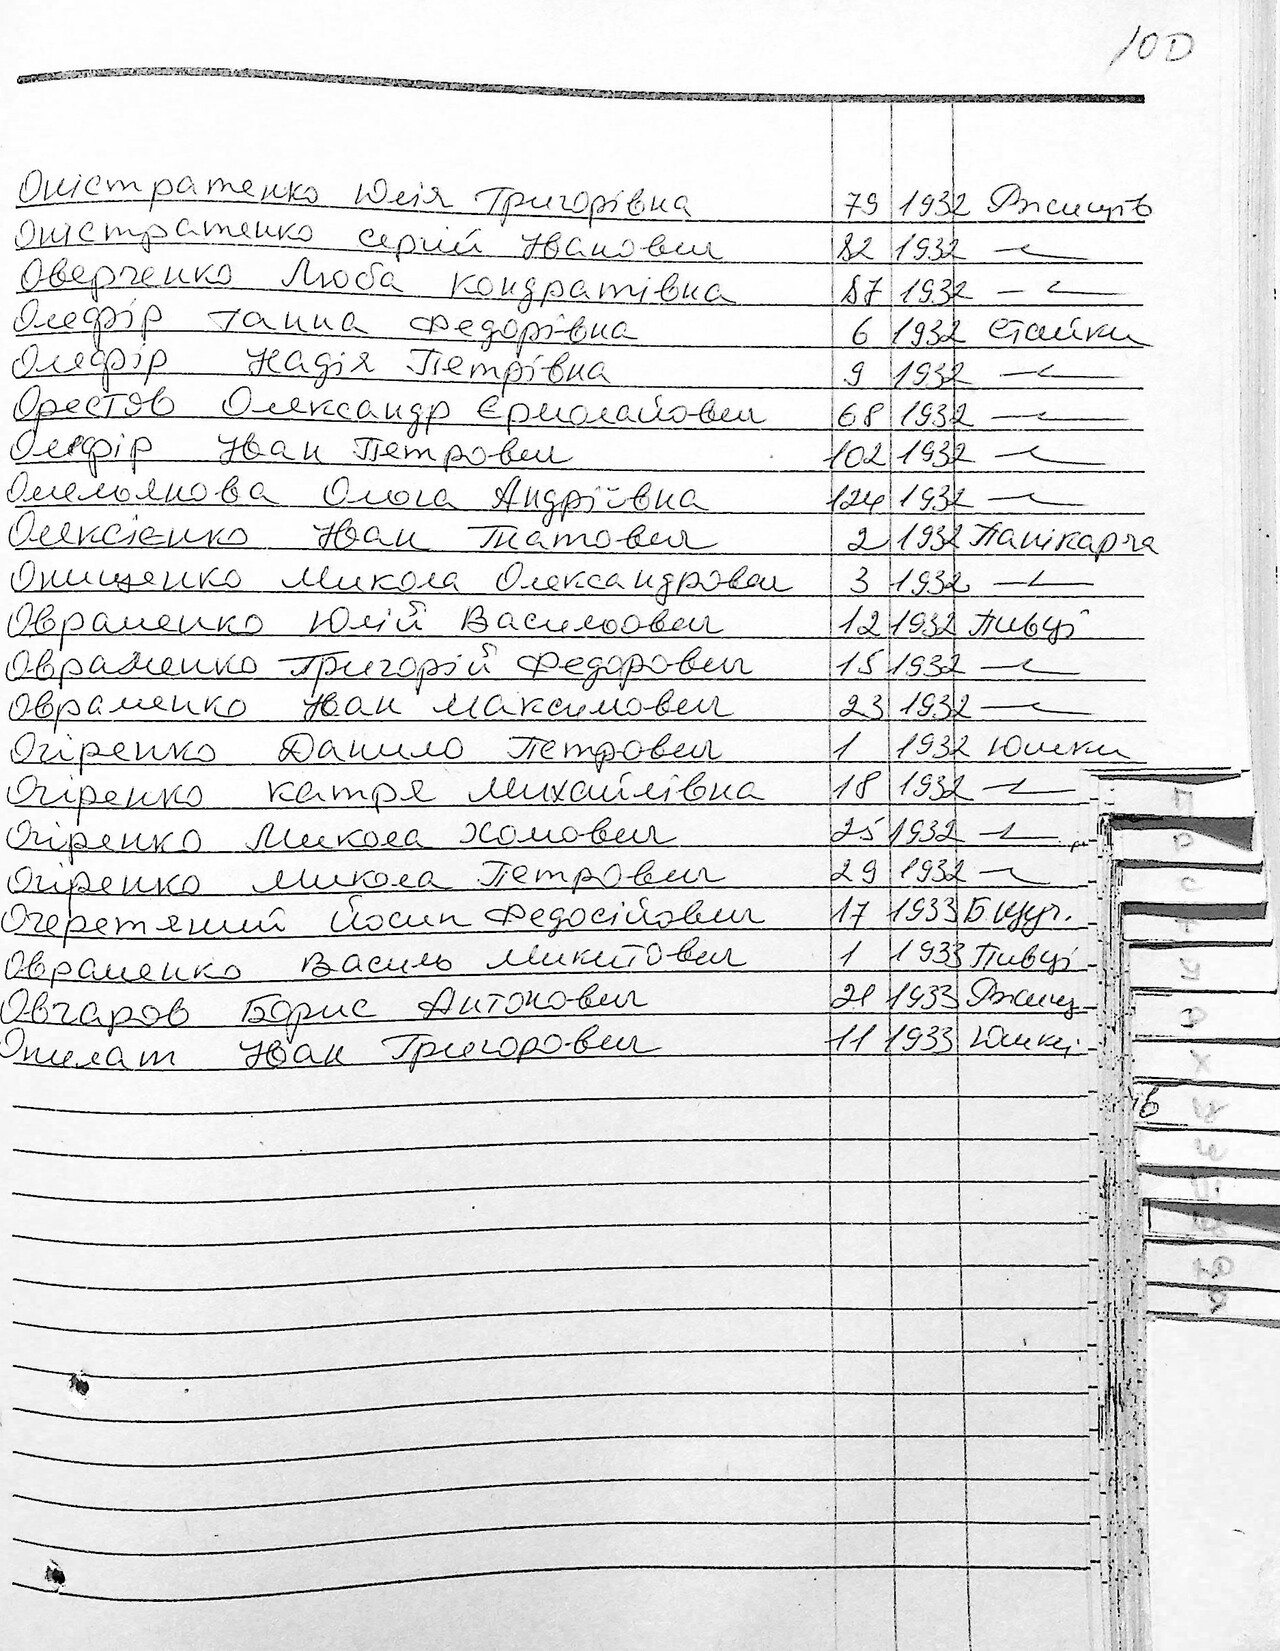 100
Оністратенко Юлія Григорівна 79 1932 Ржищів
Оністратенко Сергій Іванович 82 1932 —"—
Оверченко Люба Кондратівна 87 1932 —"—
Олефір Ганна Федорівна 6 1932 Стайки
Олефір Надія Петрівна 9 1932 —"—
Орестов Олександр Єрмолайович 68 1932 —"—
Олефір Іван Петрович 102 1932 —"—
Омельянова Ольга Андріївна 124 1932 —"—
Олексієнко Іван Ігнатович 2 1932 Панікарча
Онищенко Микола Олександрович 3 1932 —"—
Овраменко Юлій Васильович 12 1932 Пивці
Овраменко Григорій Федорович 15 1932 —"—
Овраменко Іван Максимович 23 1932 —"—
Огіренко Данило Петрович 1 1932 Юшки
Огіренко Катря Михайлівна 18 1932 —"—
Огіренко Микола Хомович 25 1932 —"—
Огіренко Микола Петрович 29 1932 —"—
Очеретяний Йосип Федосійович 17 1933 Б.
Овраменко Василь Микитович 1 1933 Пивці
Овчаров Борис Антонович 21 1933 Ржищ
Опилат Іван Григорович 11 1933 Юшки
ів